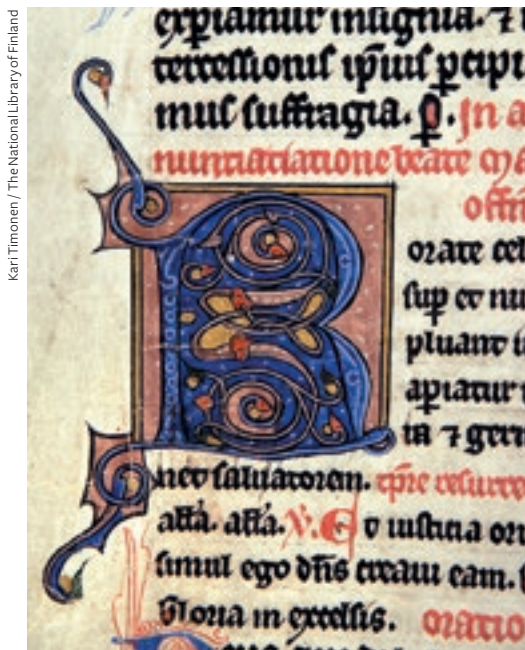 Kari Timonen / The National Library of Finland
expiamur insignia. ⁊
tercessionis ip̄ius ꝑcipi
mus suffragia. In a
nuntiatiatione beate ma
offi
R
orate cel
sup et nu
pluant i
apiatur
in ⁊ germ
net saluatorem. tp̄re resurre
aƚƚa. aƚƚa. V. Et iusticia ori
simul ego dn̄s creaui eam.
Gloria in excelsis. oratio